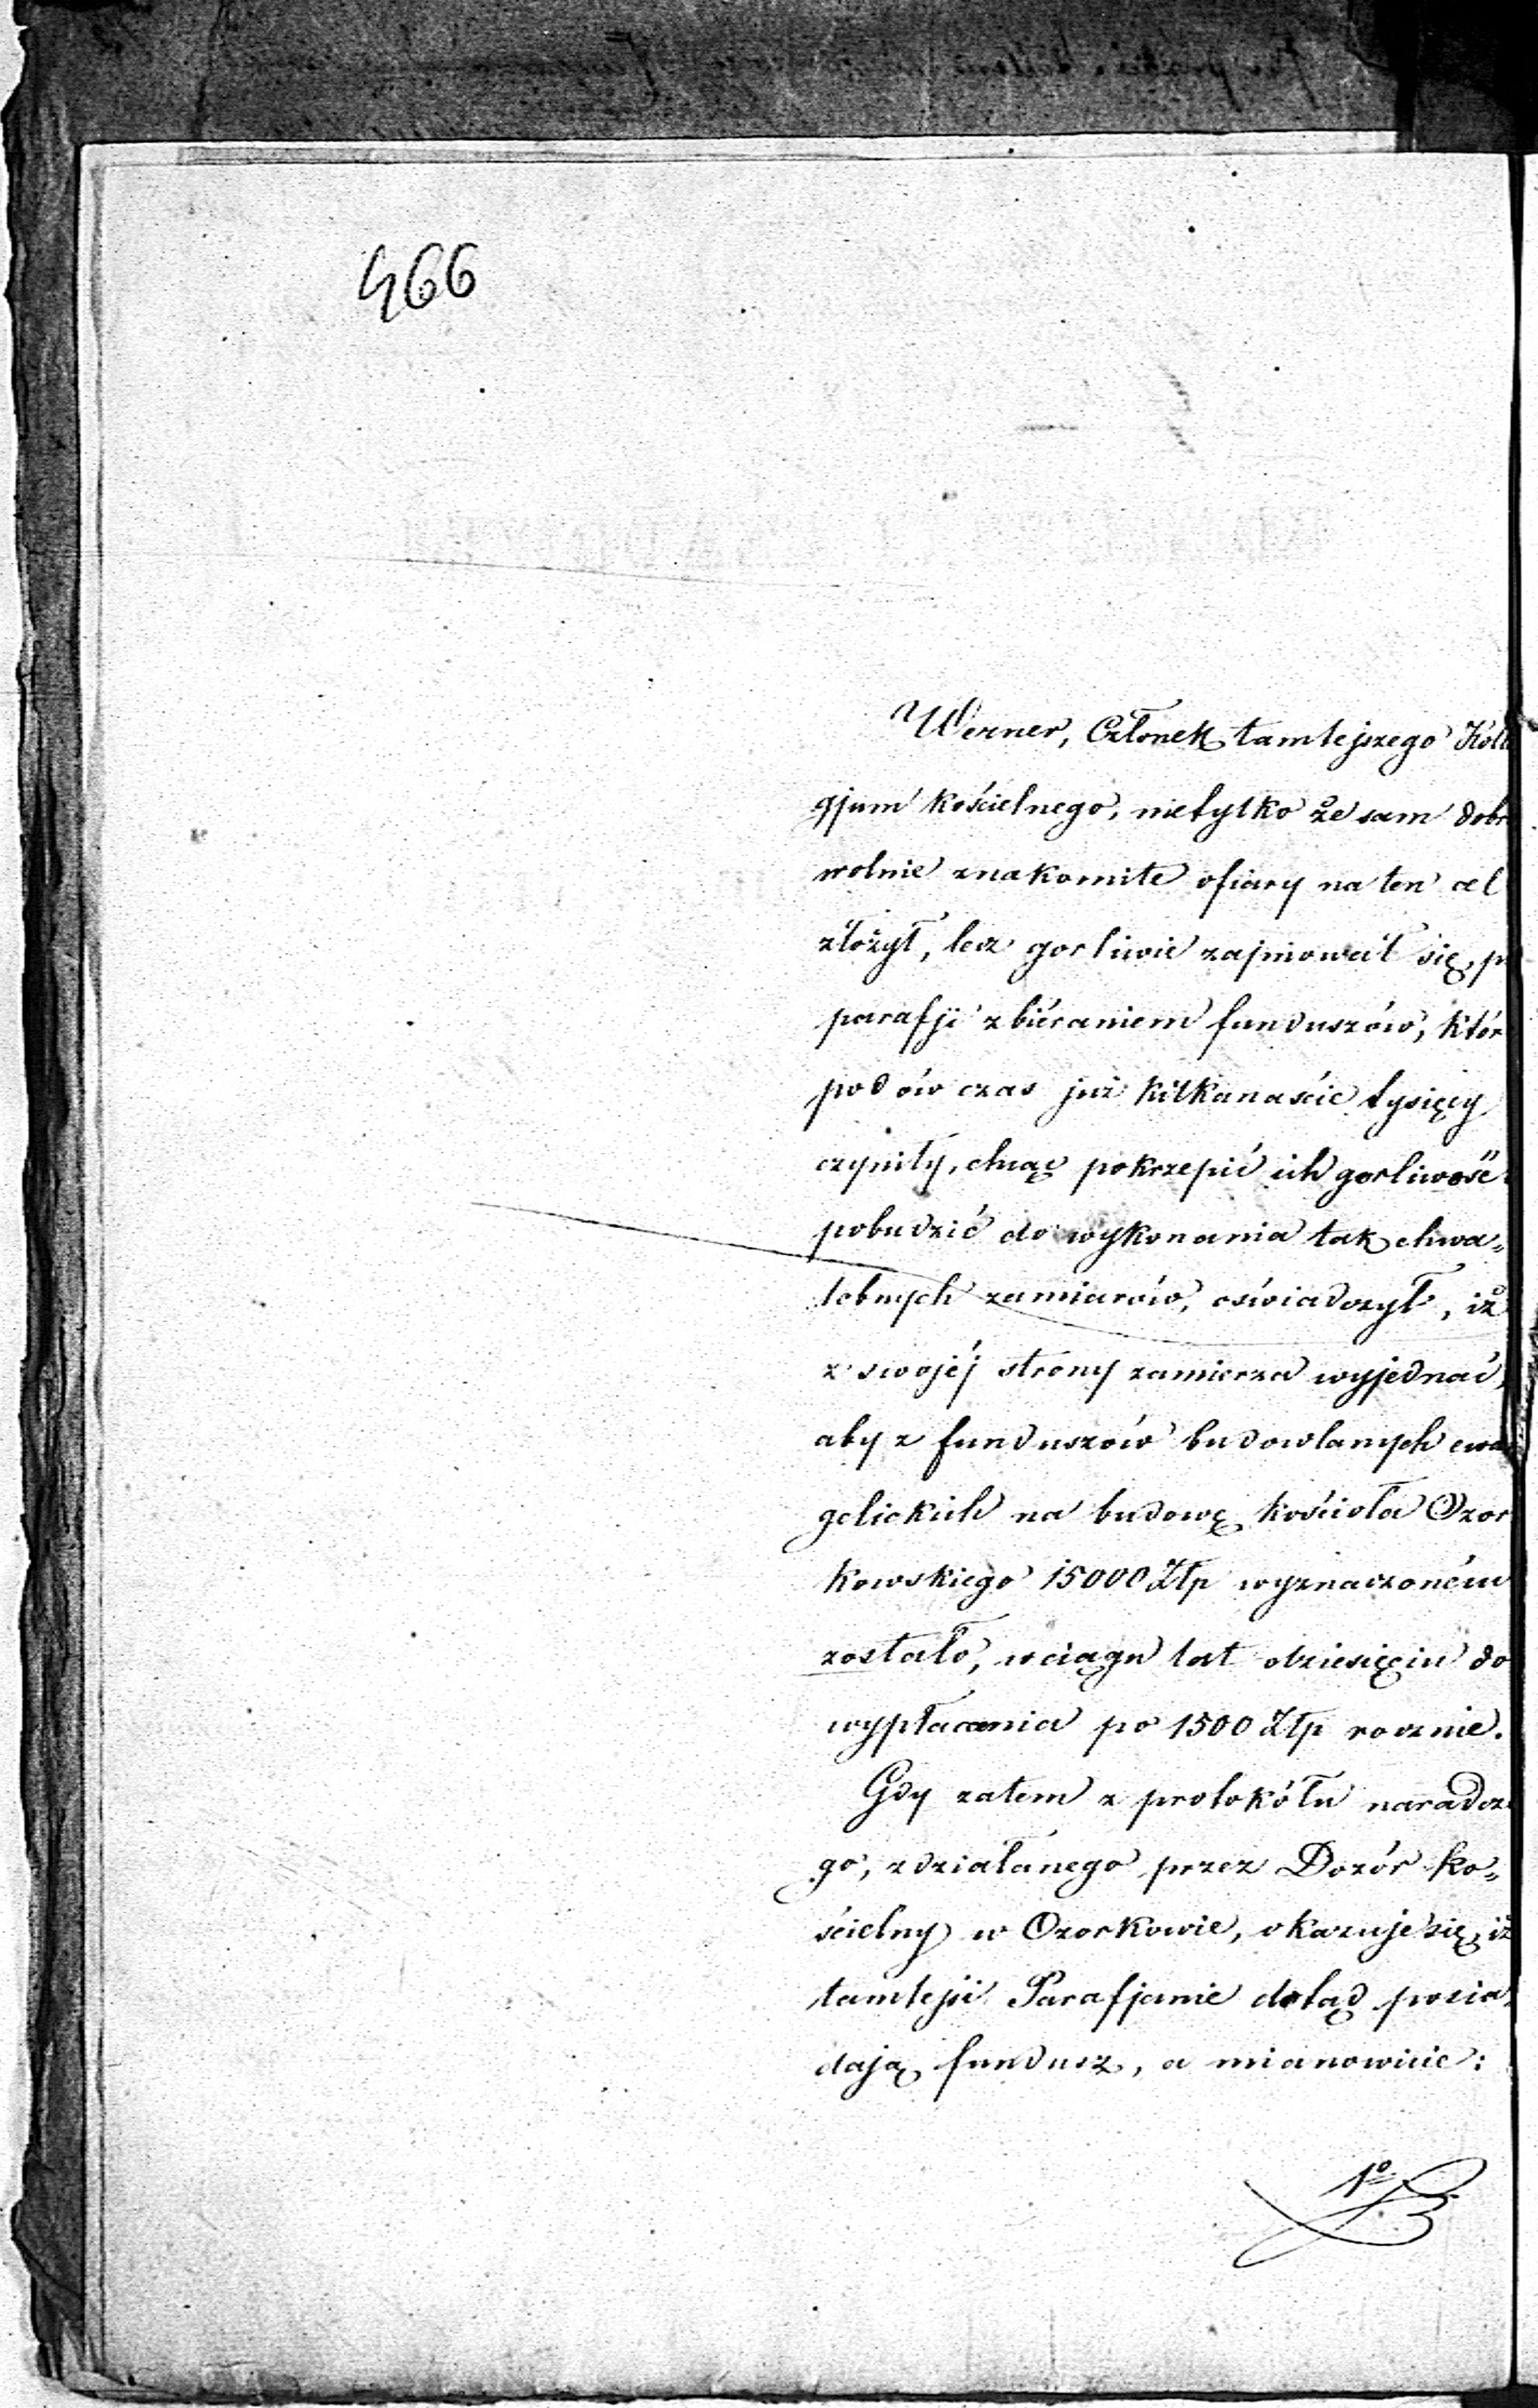 466
Werner, Członek tamtejszego Kolle
gjum kościelnego, nietylko że sam dobro
wolnie znakomite ofiary na ten cel
złożył, lecz gorliwie zajmował się, p
parafji zbiéraniem funduszów, któr
pod ów czas już kilkanaście tysięcy
czyniły, chcąc pokrzepić ich gorliwość
pobudzić do wykonania tak chwa„
lebnych zamiarów, oświadczył, iż
z swojéj strony zamierza wyjednać,
aby z funduszów budowlanych ewa
gelickich na budowę kościoła Ozor
kowskiego 15000 Złp wyznaczoném
zostało, w ciągu lat dziesięciu do
wypłacenia po 1500 Złp rocznie.
Gdy zatem z protokółu naradcz
go, zdziałanego przez Dozór ko„
ścielny w Ozorkowie, okazuje się, iż
tamtejsi Parafjanie dotąd posia„
dają fundusz, a mianowicie:
1º